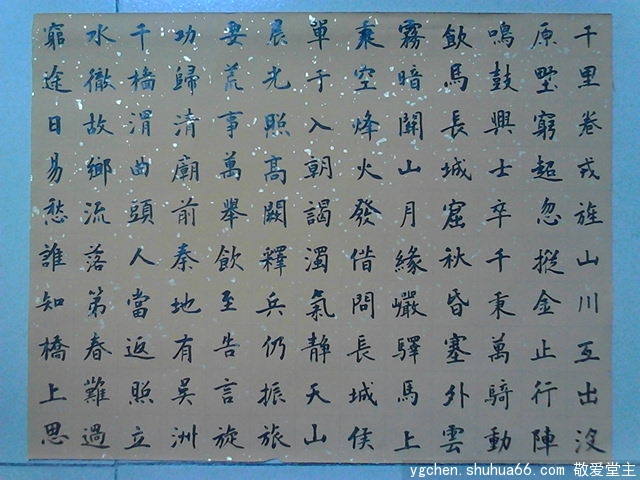 千里卷戎旌山川互出沒
原墅窮超忽摐金止行陣
鳴鼓興士卒千乘萬騎動
飲馬長城窟秋昏塞外雲
霧暗關山月緣巖驛馬上
乘空烽火發借問長城侯
單于入朝謁濁氣靜天山
晨光照高闕釋兵仍振旅
要荒事萬舉飲至告言旋
功歸清廟前秦地有吳洲
千檣渭曲頭人當返照立
水徹故鄉流落第春難過
窮途日易愁誰知橋上思
ygchen.shuhua66.com 敬爱堂主